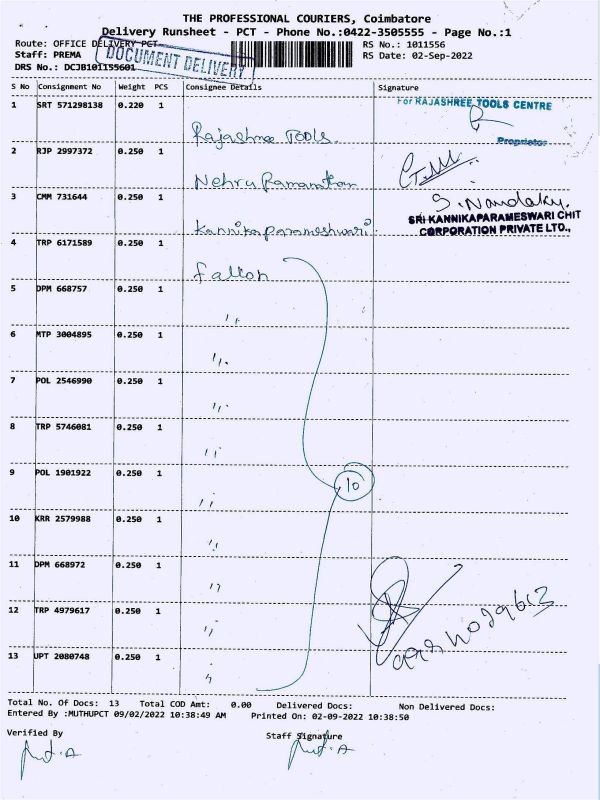 THE PROFESSIONAL COURIERS, Coimbatore
Delivery Runsheet - PCT - Phone No.:0422-3505555 - Page No.:1
Route: OFFICE DELIVERY PCT
RS No.: 1011556
Staff: PREMA
RS Date: 02-Sep-2022
DRS No.: DCJB101155601
DOCUMENT DELIVERY
S No Consignment No Weight PCS Consignee Details Signature
1 SRT 571298138 0.220 1 Rajashree Tools.
For RAJASHREE TOOLS CENTRE
Proprietor
2 RJP 2997372 0.250 1 Nehru
3 CMM 731644 0.250 1 Kannikaparameshwari
SRI KANNIKAPARAMESWARI CHIT
CORPORATION PRIVATE LTO.,
4 TRP 6171589 0.250 1
5 DPM 668757 0.250 1 ,,
6 MTP 3004895 0.250 1 ,,
7 POL 2546990 0.250 1 ,,
8 TRP 5746081 0.250 1 ,,
9 POL 1901922 0.250 1 ,,
10
10 KRR 2579988 0.250 1 ,,
11 DPM 668972 0.250 1 ,,
12 TRP 4979617 0.250 1 ,,
13 UPT 2080748 0.250 1 ,,
Total No. Of Docs: 13 Total COD Amt: 0.00 Delivered Docs: Non Delivered Docs:
Entered By :MUTHUPCT 09/02/2022 10:38:49 AM Printed On: 02-09-2022 10:38:50
Verified By Staff Signature